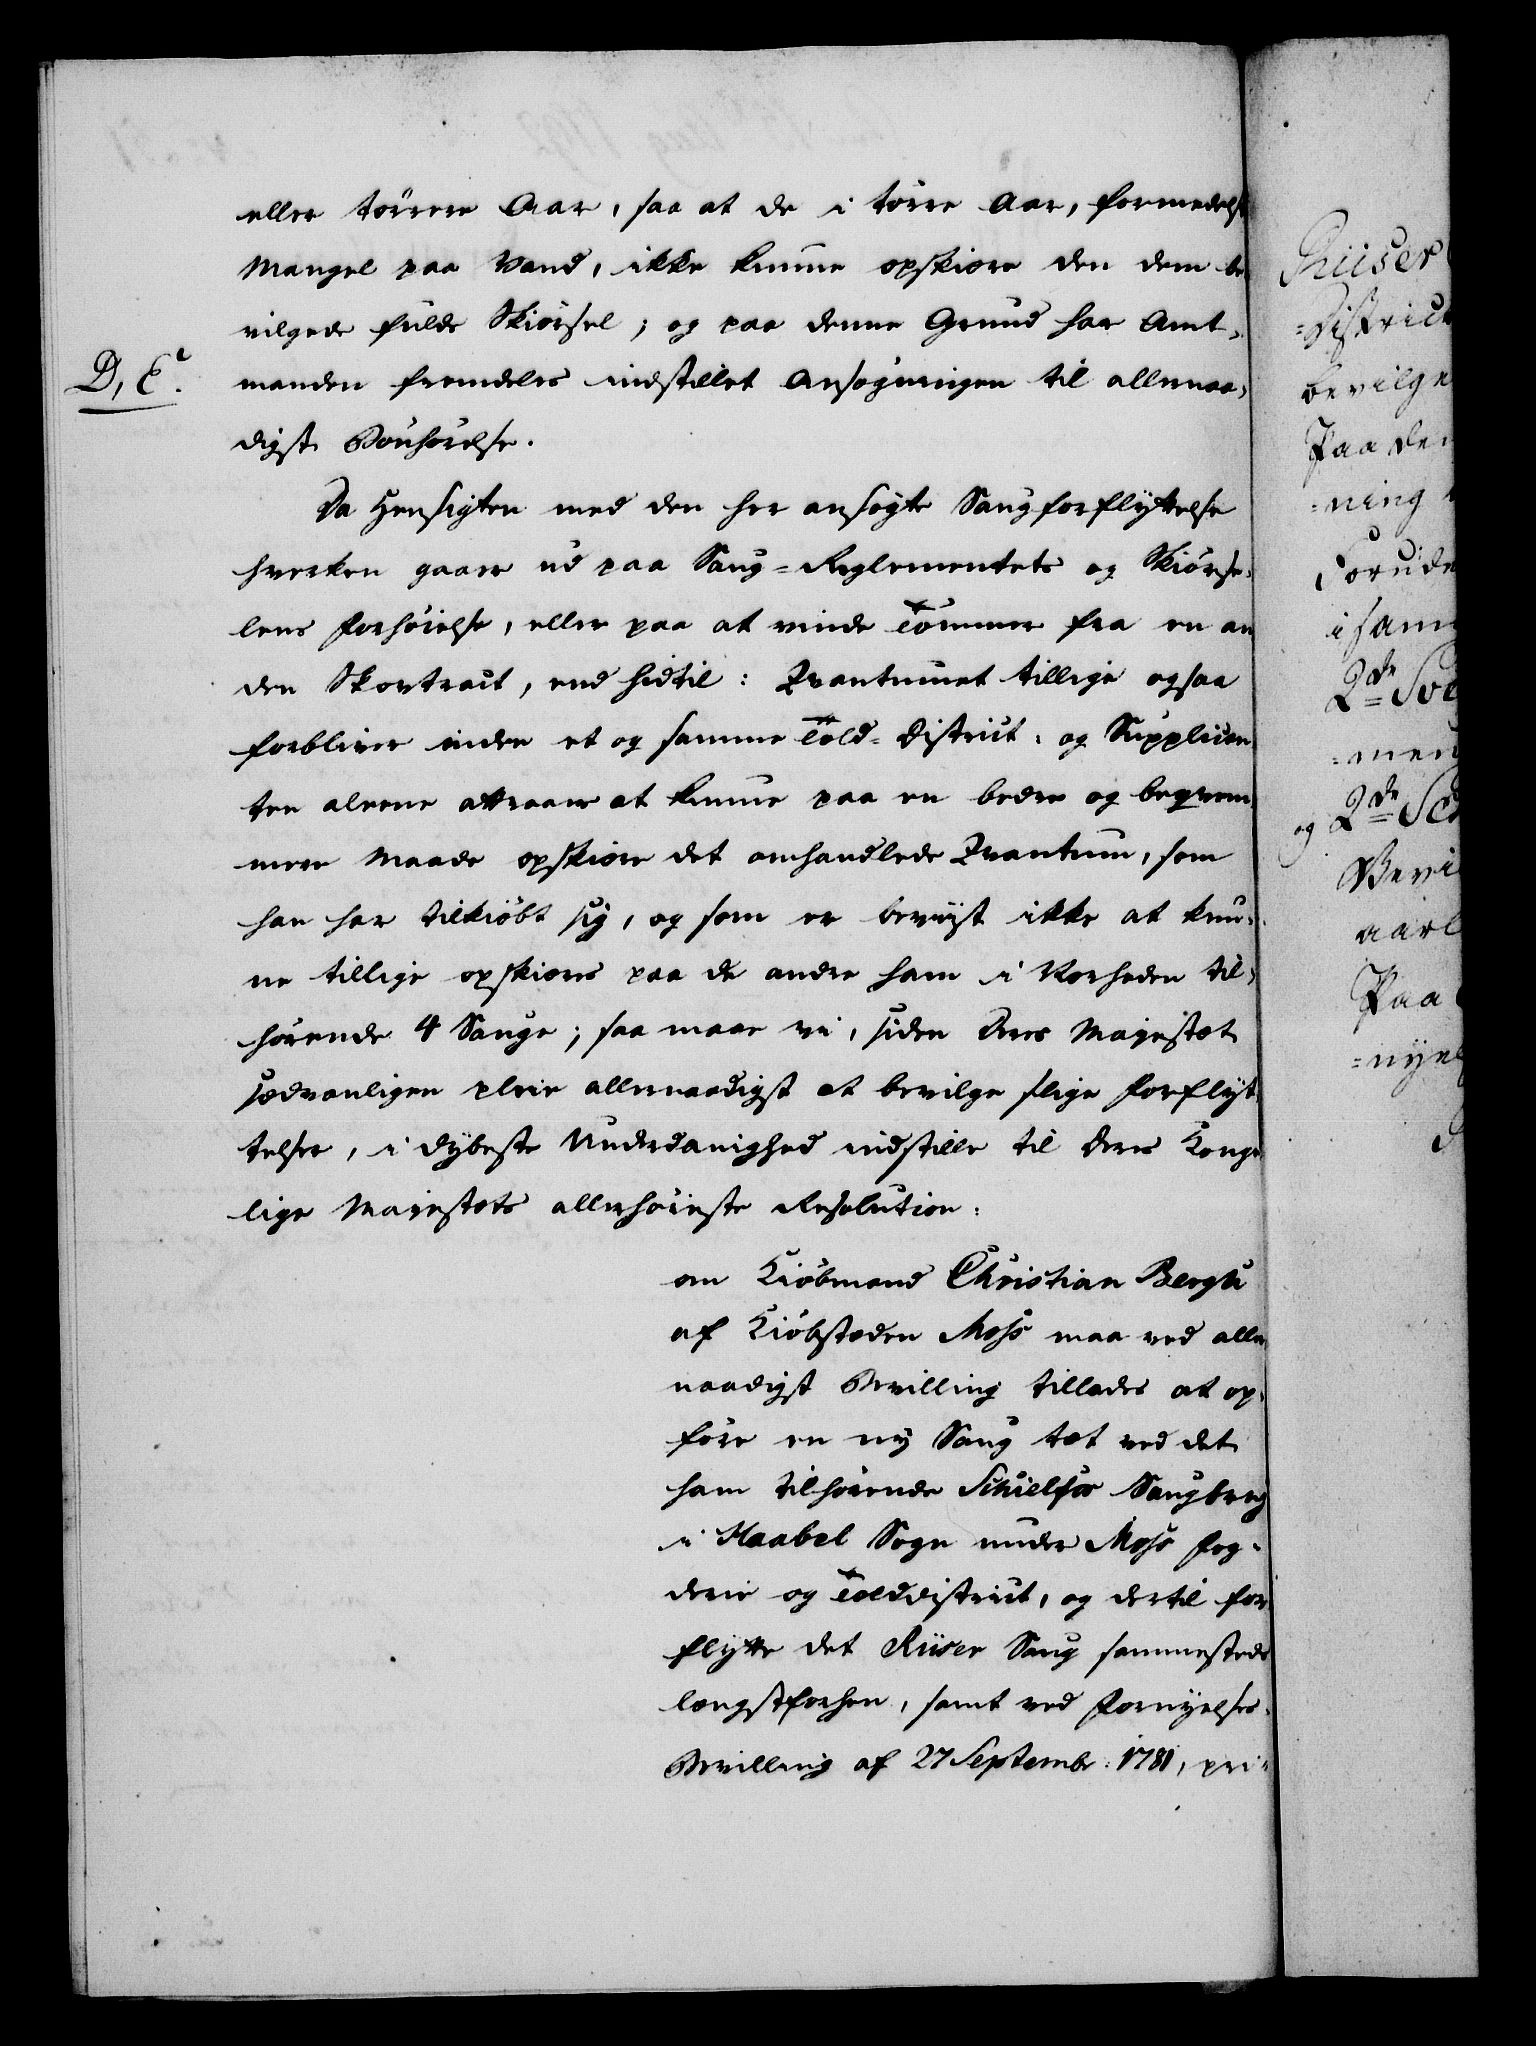 eller törrere Aar, saa at de i törre Aar, formedelst
Mangel paa Vand, ikke kunne opskiöre den dem be
vilgede fulde Skiörsel; og paa denne Grund har Amt-
D, E.
manden fremdeles indstillet Ansögningen til allernaa-
digst Bönhörelse.
Da Hensigten med den her ansögte Saugforflyttelse
hverken gaaer ud paa Saug-Reglementets og Skiörse-
lens Forhöielse, eller paa at vinde Tömmer fra en an
den Skovtract, end hidtil: Qvantumet tillige ogsaa
forbliver inden et og samme Told-District: og Supplican
ten aleene attraaer at kunne paa en bedre og beqvem
mere Maade opskiöre det omhandlede Qvantum, som
han har tilkiöbt sig, og som er beviist ikke at kun-
ne tillige opskiöres paa de andre ham i Nærheden til-
hörende 4 Sauge; saa maae vi, siden Deres Majestæt
sædvanligen pleie allernaadigst at bevilge slige Forflyt
telser, i dybeste Underdanighed indstille til Deres Konge
lige Majestæts allerhöieste Resolution:
om Kiöbmand Christian Bergh
af Kiöbstæden Moss maa ved aller
naadigst Bevilling tillades at op-
före en ny Saug tæt ved det
ham tilhörende Schielfos Saugbrug
i Haabel Sogn under Moss Fog-
derie og Tolddistrict, og dertil for
flytte det Riiser Saug sammesteds
længst forhen, samt ved Fornyelses-
Bevilling af 27 Septembr: 1781, pri-
Riiser
=District
bevilge
Paa de
=ning
Forude
i sam
2de
=men
og 2de
Bevi
aarl
Paa
=nye